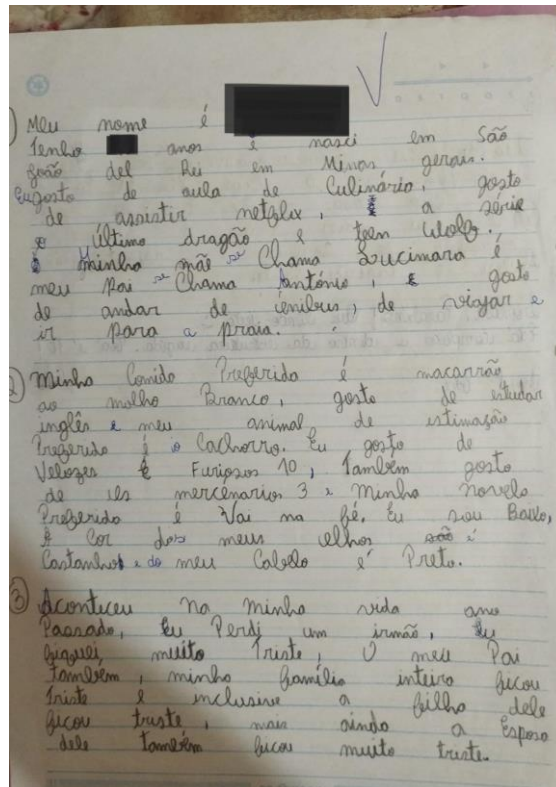 1) Meu nome é
Tenho anos e nasci em São
João del Rei em Minas gerais.
Eu gosto de aula de Culinária, gosto
de assistir netflix, a série
o último dragão e teen Wolf.
minha mãe se Chama Lucimara é
meu Pai se Chama Antônio, e gosto
de andar de ônibus, de viajar e
ir Para a Praia.
2) Minha Comida Preferida é macarrão
ao molho Branco, gosto de estudar
inglês e meu animal de estimação
Preferido é o Cachorro. Eu gosto de
Velozes e Furiosos 10, Também gosto
de os mercenários 3 e Minha novela
Preferida é Vai na fé. Eu sou Baixo,
a Cor dos meus olhos são é
Castanhos e do meu Cabelo é Preto.
3) Aconteceu na minha vida ano
Passado, Eu Perdi um irmão, Eu
fiquei muito Triste, O meu Pai
também, minha família inteira ficou
Triste e inclusive a filha dele
ficou triste, mais ainda a Esposa
dele também ficou muito triste.